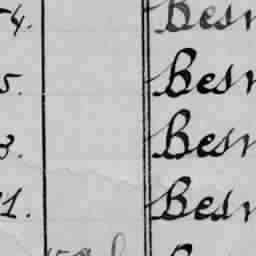 4. Besn
5. Besn
3. Besn
1. Besn